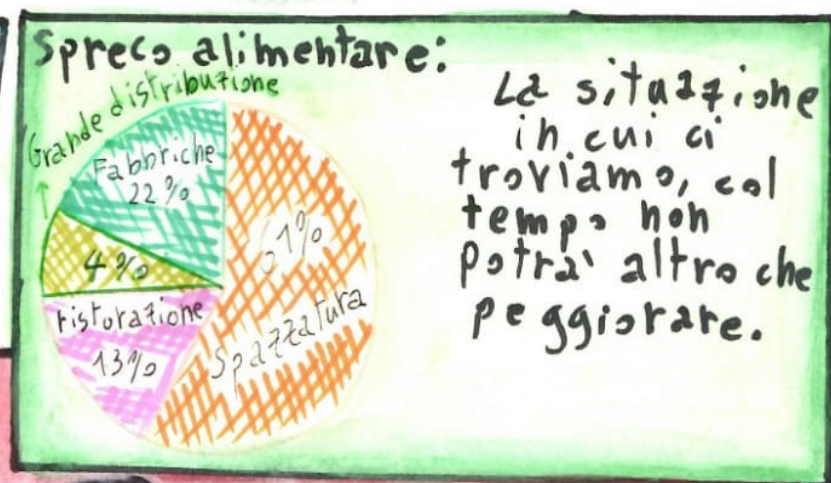 Spreco alimentare:
Grande distribuzione
Fabbriche
22%
61%
4%
ristorazione
13%
Spazzatura
La situazione
in cui ci
troviamo, col
tempo non
potrà altro che
peggiorare.